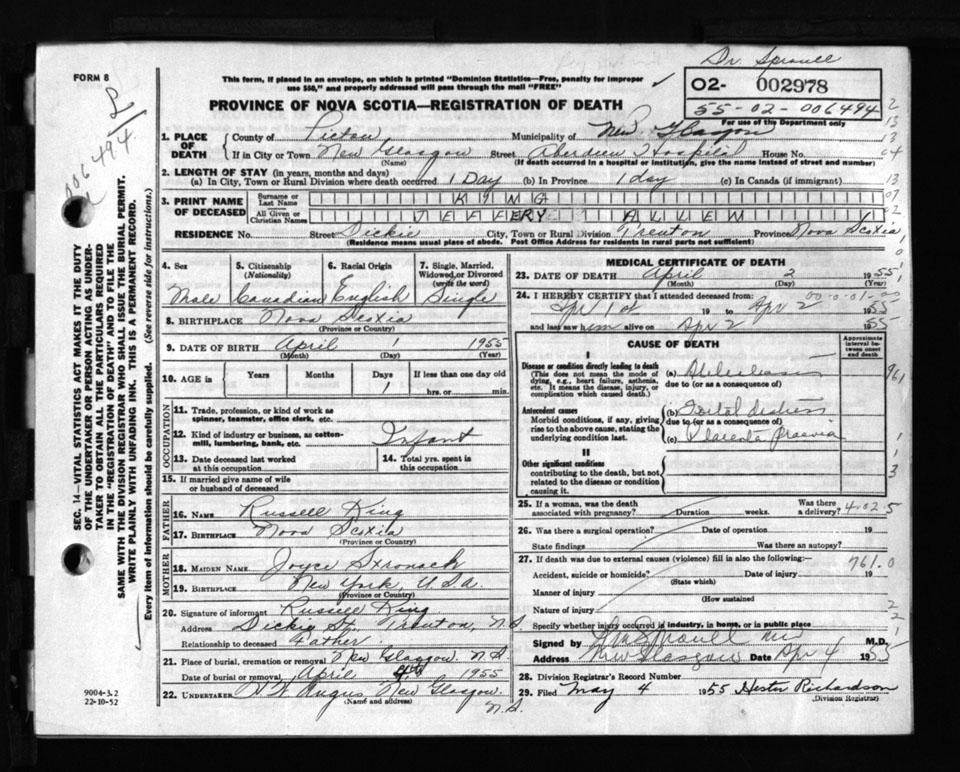 Dr. Sproull
FORM 8
This form, if placed in an envelope, on which is printed "Dominion Statistics—Free, penalty for improper
use $50," and properly addressed will pass through the mail "FREE"
02- 002978
55-02-006494
For use of the Department only
PROVINCE OF NOVA SCOTIA—REGISTRATION OF DEATH
006494
SEC. 14—VITAL STATISTICS ACT MAKES IT THE DUTY
OF THE UNDERTAKER OR PERSON ACTING AS UNDER-
TAKER TO OBTAIN ALL THE PARTICULARS REQUIRED
IN THE "REGISTRATION OF DEATH" AND TO FILE THE
SAME WITH THE DIVISION REGISTRAR WHO SHALL ISSUE THE BURIAL PERMIT.
WRITE PLAINLY WITH UNFADING INK. THIS IS A PERMANENT RECORD.
Every item of information should be carefully supplied. (See reverse side for instructions.)
1. PLACE OF DEATH County of Pictou Municipality of New Glasgow
If in City or Town New Glasgow Street Aberdeen Hospital House No.
(Name) (If death occurred in a hospital or institution, give the name instead of street and number)
2. LENGTH OF STAY (in years, months and days)
(a) In City, Town or Rural Division where death occurred 1 Day (b) In Province 1 day (c) In Canada (if immigrant)
3. PRINT NAME OF DECEASED Surname or Last Name KING
All Given or Christian Names JEFFERY ALLEN
RESIDENCE No. Street Dickie City, Town or Rural Division Trenton Province Nova Scotia
(Residence means usual place of abode. Post Office Address for residents in rural parts not sufficient)
4. Sex 5. Citizenship (Nationality) 6. Racial Origin 7. Single, Married, Widowed, or Divorced (write the word)
Male Canadian English Single
8. BIRTHPLACE Nova Scotia
(Province or Country)
9. DATE OF BIRTH April 1 1955
(Month) (Day) (Year)
10. AGE in Years Months Days If less than one day old
1 hrs. or min.
OCCUPATION
11. Trade, profession, or kind of work as
spinner, teamster, office clerk, etc.
12. Kind of industry or business, as cotton-
mill, lumbering, bank, etc. Infant
13. Date deceased last worked
at this occupation 14. Total yrs. spent in
this occupation
15. If married give name of wife
or husband of deceased
FATHER
16. NAME Russell King
17. BIRTHPLACE Nova Scotia
(Province or Country)
MOTHER
18. MAIDEN NAME Joyce Stronach
19. BIRTHPLACE New York, U.S.A.
(Province or Country)
20. Signature of informant Russell King
Address Dickie St. Trenton, N.S.
Relationship to deceased Father
21. Place of burial, cremation or removal New Glasgow. N.S
Date of burial or removal April 4th 1955
22. UNDERTAKER H. W. Angus New Glasgow.
(Name and address) N.S.
9004-3.2
22-10-52
MEDICAL CERTIFICATE OF DEATH
23. DATE OF DEATH April 2 1955
(Month) (Day)
24. I HEREBY CERTIFY that I attended deceased from:
Apr 1st 19 to Apr 2 1955
and last saw him alive on Apr 2 1955
CAUSE OF DEATH
Approximate interval between onset and death
I
Disease or condition directly leading to death
(This does not mean the mode of
dying, e.g., heart failure, asthenia,
etc. It means the disease, injury, or
complication which caused death.)
(a) Atelectasis
due to (or as a consequence of)
Antecedent causes
Morbid conditions, if any, giving
rise to the above cause, stating the
underlying condition last.
(b) Foetal distress
due to (or as a consequence of)
(c) Placenta praevia
II
Other significant conditions
contributing to the death, but not
related to the disease or condition
causing it.
25. If a woman, was the death
associated with pregnancy? Duration weeks. Was there
a delivery? 4.02.5
26. Was there a surgical operation? Date of operation 19
State findings Was there an autopsy?
27. If death was due to external causes (violence) fill in also the following:— 761.0
Accident, suicide or homicide? Date of injury 19
(State which)
Manner of injury
(How sustained
Nature of injury
Specify whether injury occurred in industry, in home, or in public place
Signed by Sproull MD M.D.
Address New Glasgow Date Apr 4 1955
28. Division Registrar's Record Number
29. Filed May 4 1955 Hester Richardson
(Division Registrar)